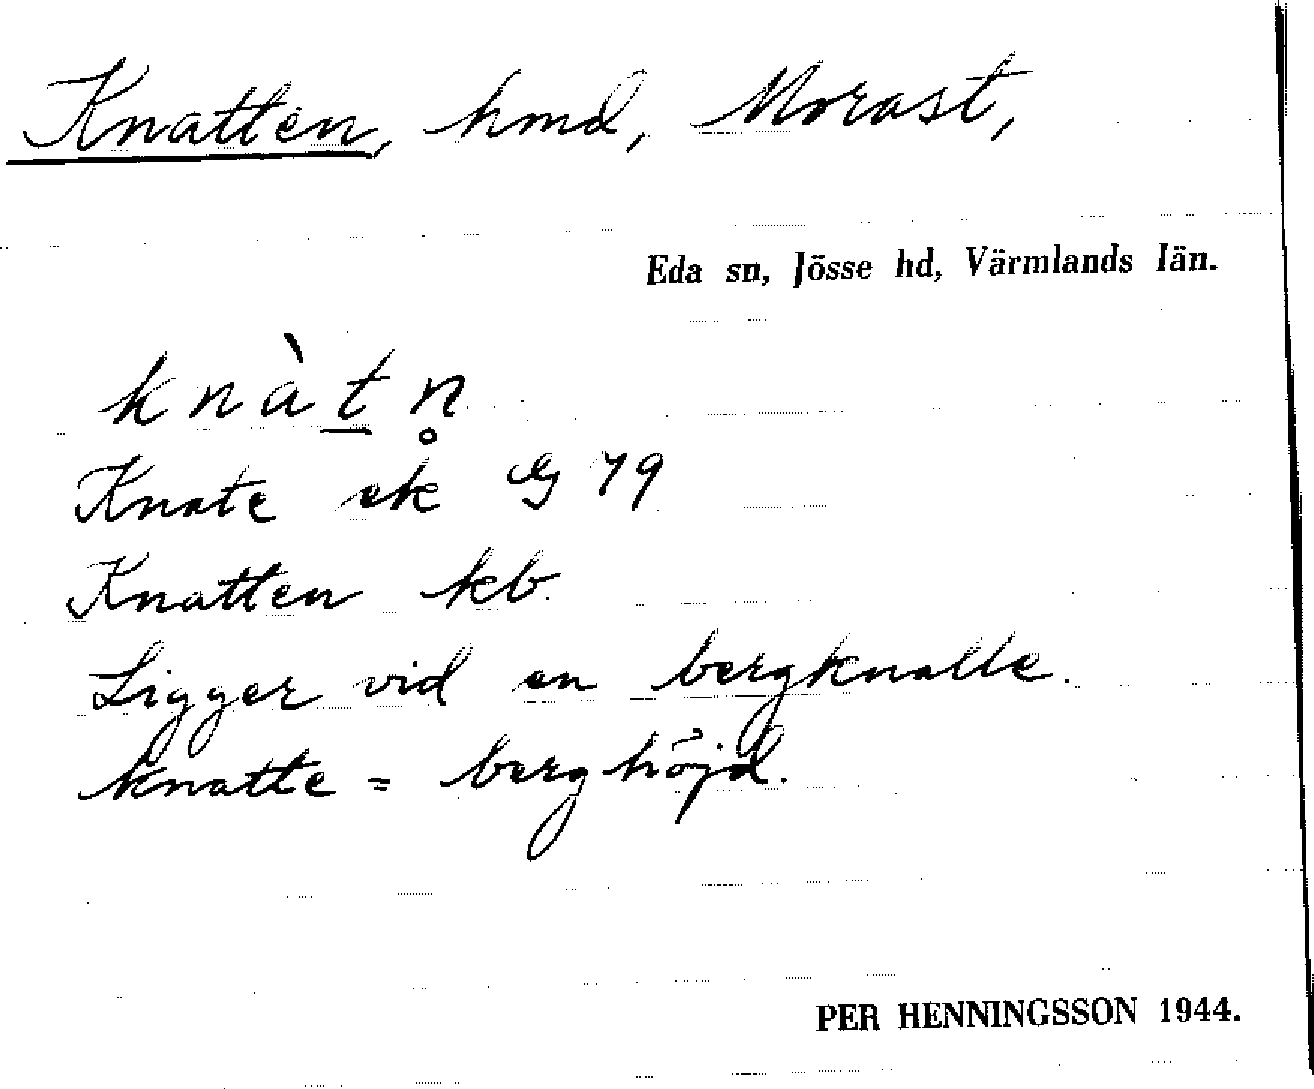 Knatten, hmd, Morast,
Eda sn, Jösse hd, Värmlands län.
knàt̲n̥
Knate ek G 79
Knatten kb.
Ligger vid en bergknalle.
knatte = berghöjd.
PER HENNINGSSON 1944.